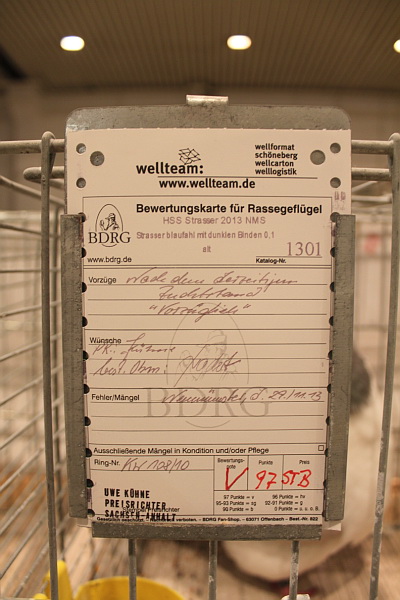 wellteam:
wellformat
schöneberg
wellcarton
welllogistik
www.wellteam.de
Bewertungskarte für Rassegeflügel
HSS Strasser 2013 NMS
BDRG
www.bdrg.de
Strasser blaufahl mit dunklen Binden 0,1
alt
1301
Katalog-Nr.
Vorzüge Nach dem derzeitigen
Zuchtstand
"Vorzüglich"
Wünsche
Fehler/Mängel Neumünster, d. 29/11.13
BDRG
Ausschließende Mängel in Kondition und/oder Pflege
Ring-Nr. KW 108/10
Bewertungsnote
V
Punkte
97
Preis
StB
UWE KÜHNE
PREISRICHTER
SACHSEN-ANHALT
97 Punkte = v 96 Punkte = hv
95-93 Punkte = sg 92-91 Punkte = g
90 Punkte = b 0 Punkte = o. c. o. B.
BDRG Fan-Shop. – 63071 Offenbach – Best.-Nr. 822